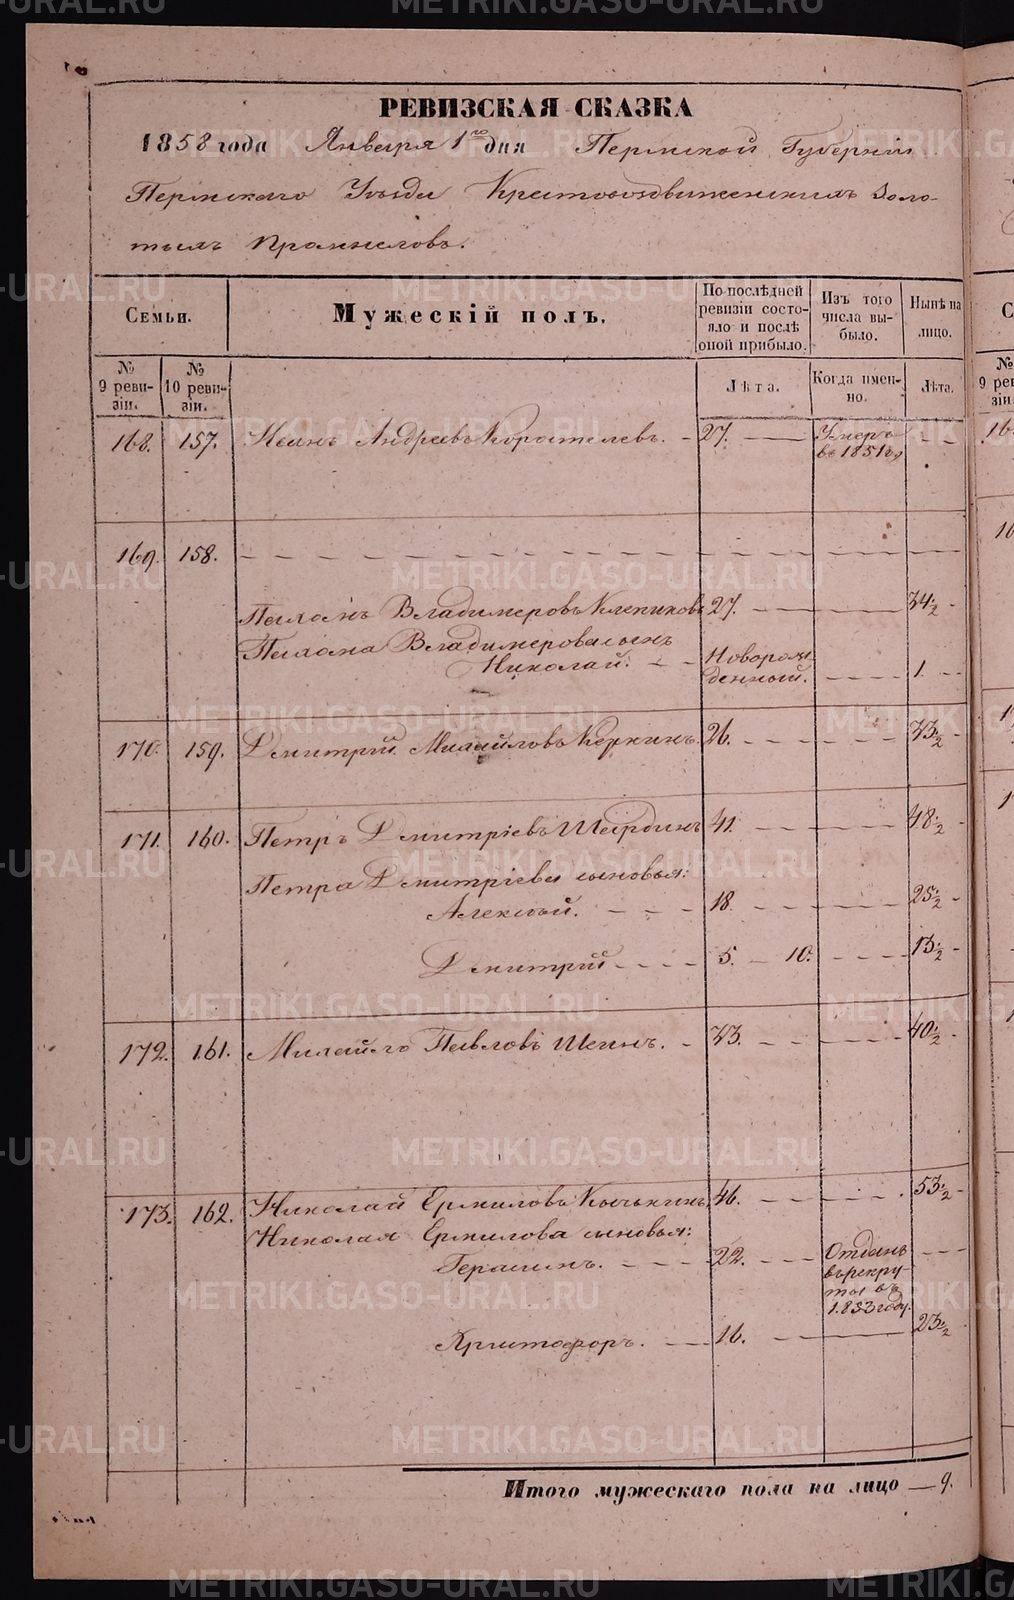 РЕВИЗСКАЯ СКАЗКА
1858 года Января 1го дня Пермской Губерніи
Пермскаго Уѣзда Крестовоздвиженскихъ Золо-
тыхъ Промысловъ.
Семьи.
Мужескій полъ.
По послѣдней ревизіи состо-яло и послѣ оной прибыло.
Изъ того числа вы-было.
Нынѣ на лицо.
№ 9 реви-зіи.
№ 10 реви-зіи.
Лѣта.
Когда имен-но.
Лѣта.
168. 157. Иванъ Андреевъ Коростелевъ. 27. Умеръ въ 1851 г.
169. 158.
Владимеровъ Клепиковъ 27. 34½
Владимерова сынъ
Николай. Новорож-денный. 1
170. 159. Дмитрий Михайловъ 26. 33½
171. 160. Петръ Дмитріевъ 41. 48½
Петра Дмитріева сыновья:
Алексѣй. 18. 25½
Дмитрий 5. 10. 13½
172. 161. Михайло Павловъ 33. 40½
173. 162. Николай Ермиловъ 46. 53½
Николая Ермилова сыновья:
Герасимъ. 22. Отданъ въ рекру-ты въ 1853 году.
Христофоръ. 16. 23½
Итого мужескаго пола на лицо — 9.
METRIKI.GASO-URAL.RU